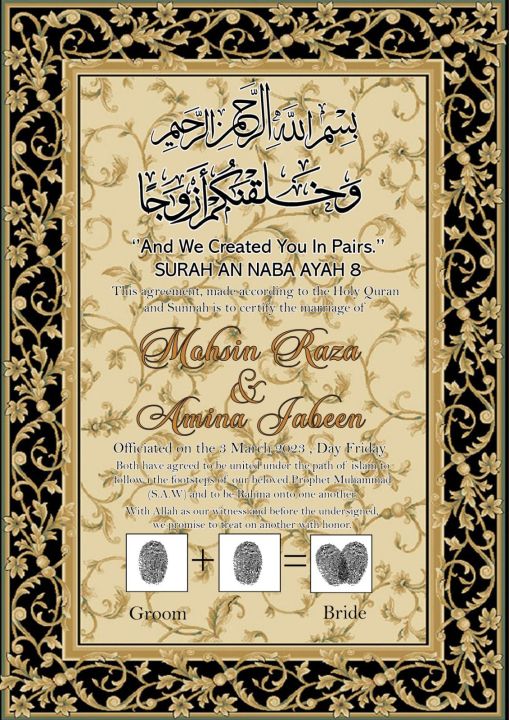 بِسْمِ اللَّهِ الرَّحْمَٰنِ الرَّحِيمِ
وَخَلَقْنَٰكُمْ أَزْوَٰجًا
‘‘And We Created You In Pairs.’’
SURAH AN NABA AYAH 8
This agreement, made according to the Holy Quran
and Sunnah is to certify the marriage of
Mohsin Raza
&
Amina Jabeen
Officiated on the 3 March 2023 , Day Friday
Both have agreed to be united under the path of islam to
follow i the footsteps of our beloved Prophet Muhammad
(S.A.W) and to be Rahma onto one another.
With Allah as our witness and before the undersigned,
we promise to treat on another with honor.
+ =
Groom Bride